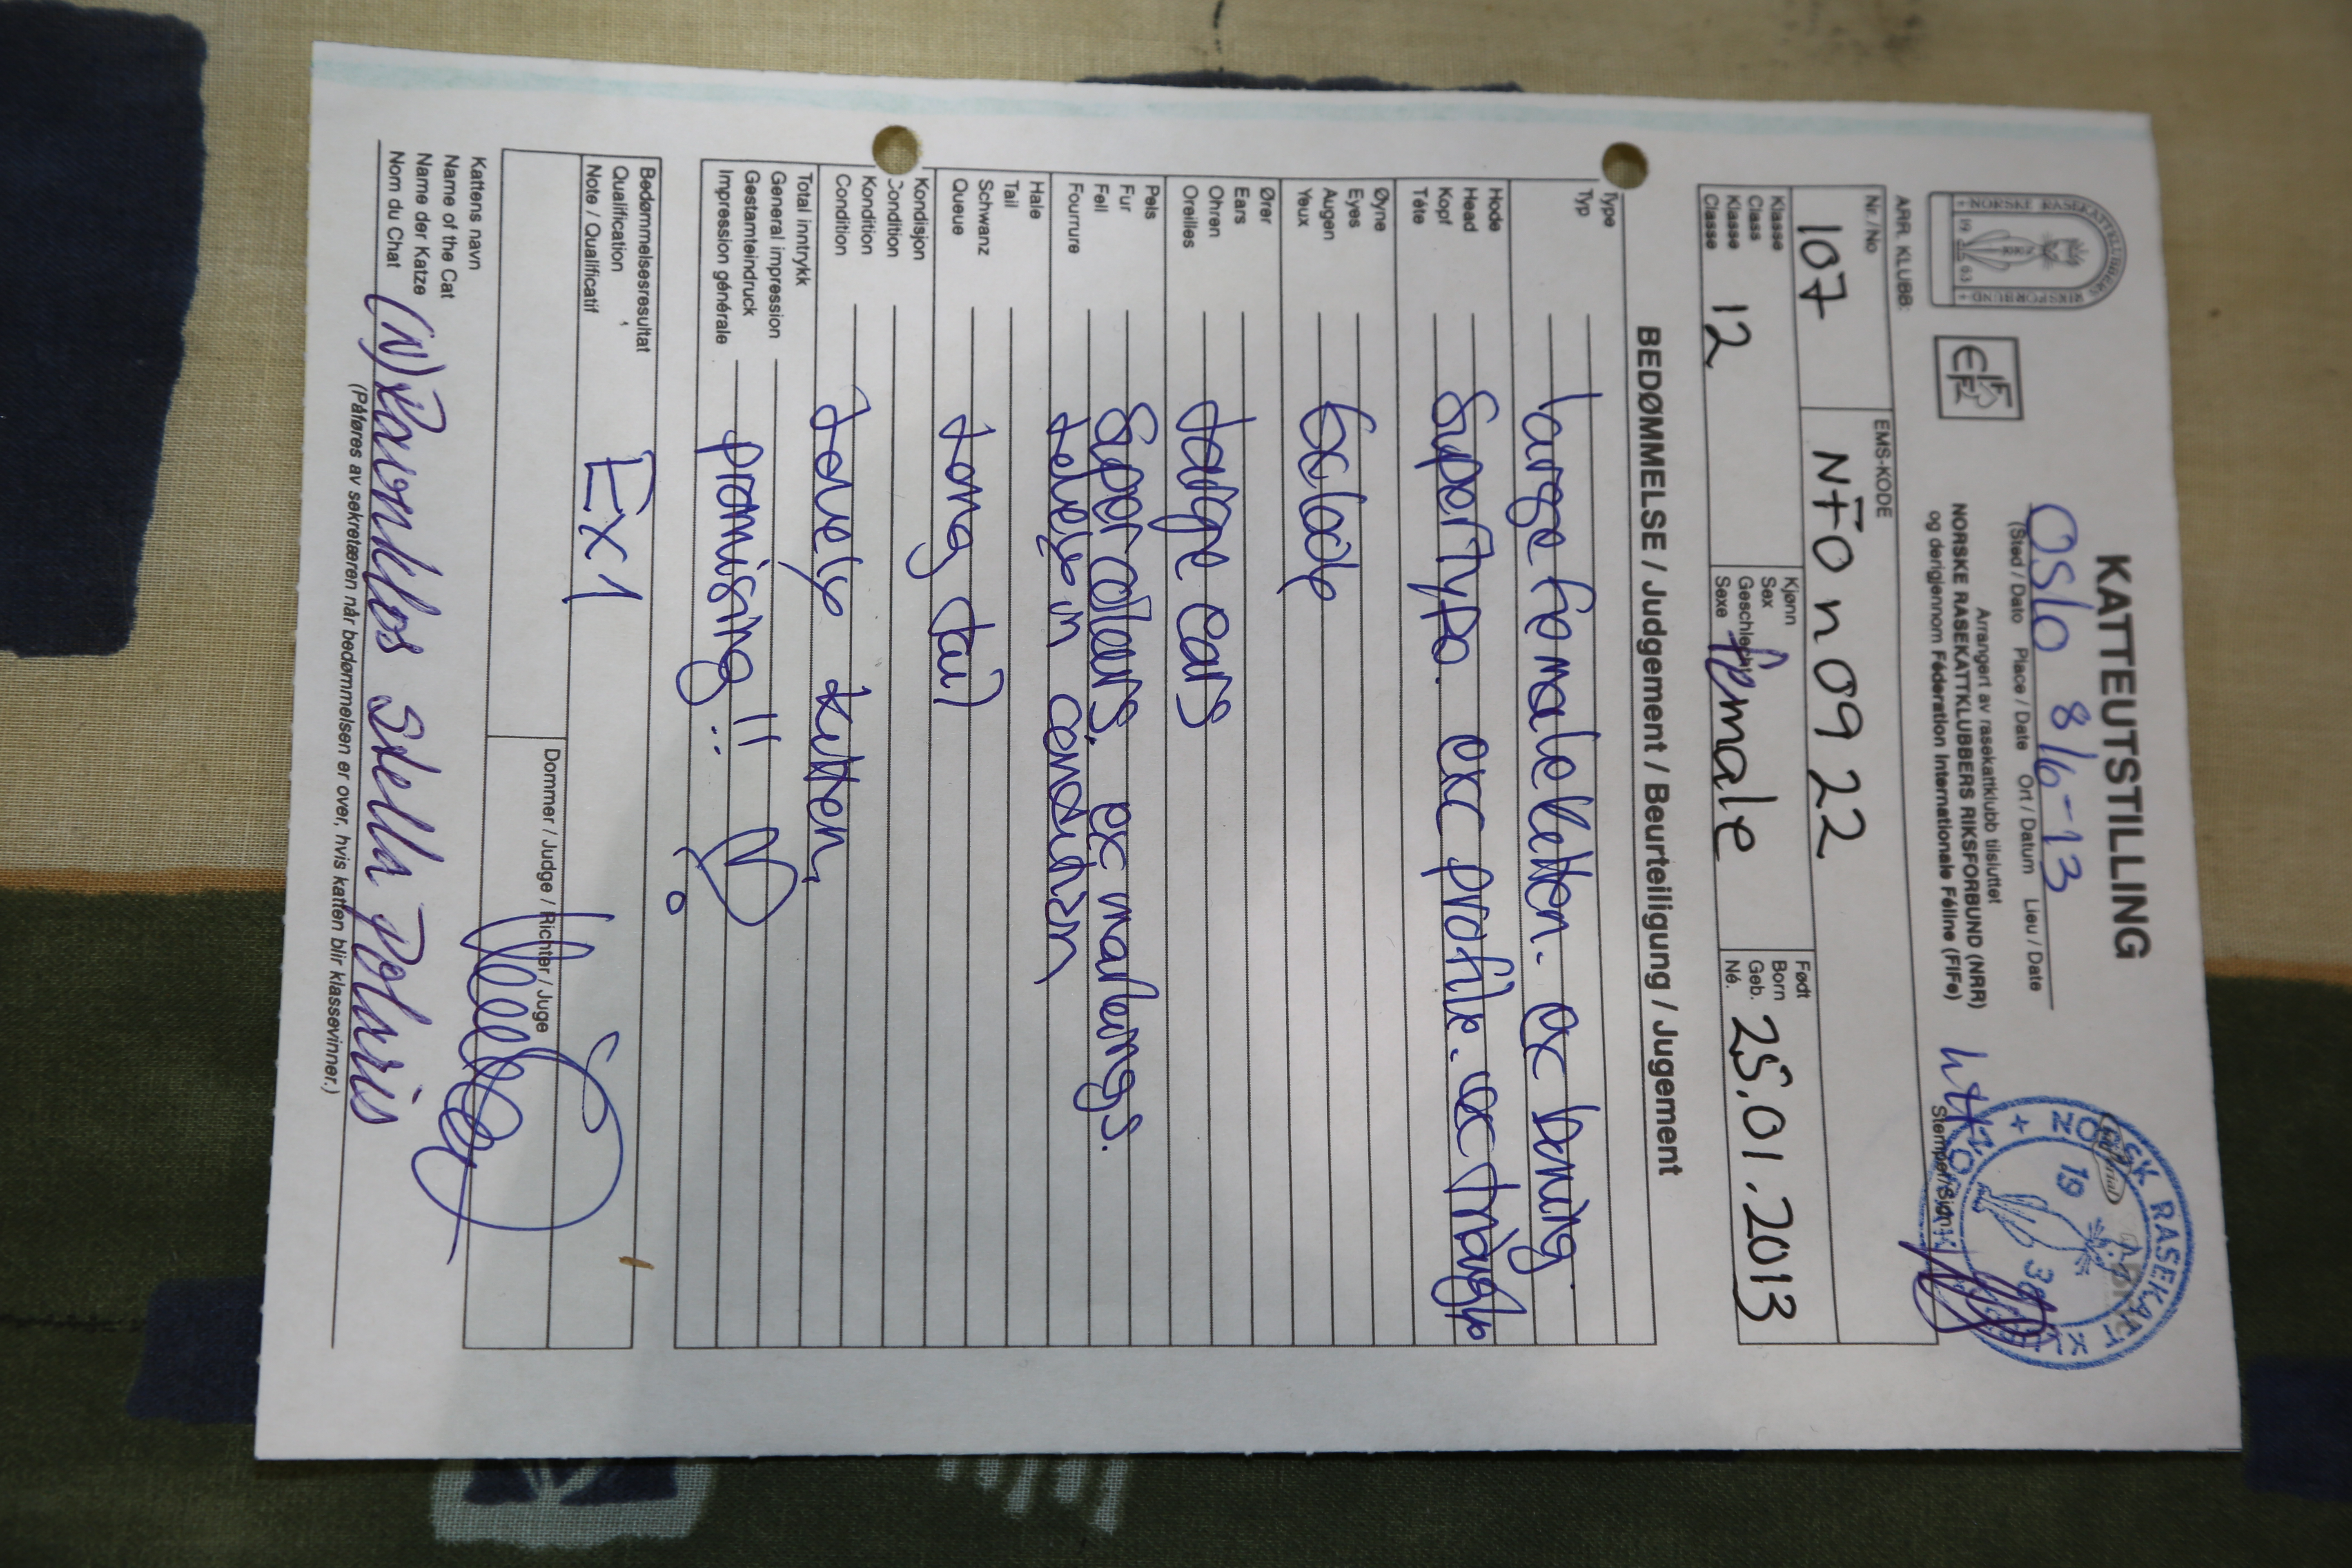 KATTEUTSTILLING
OSLO 8/6-13
(Sted / Dato Place / Date Ort / Datum Lieu / Date
Arrangert av rasekattklubb tilsluttet
NORSKE RASEKATTKLUBBERS RIKSFORBUND (NRR)
og derigjennom Féderation Internationale Féline (FIFe)
NORSKE RASEKATTKLUBBERS RIKSFORBUND
19 63
NORSK RASEKATT KLUBB
19 38
Stempel/Sign.
ARR. KLUBB:
Nr. / No
107
EMS-KODE
NFO n 09 22
Klasse
Class
Klasse
Classe
12
Kjønn
Sex
Geschlecht
Sexe
female
Født
Born
Geb.
Né.
25.01.2013
BEDØMMELSE / Judgement / Beurteiligung / Jugement
Type
Typ
large female kitten. exc boning.
Hode
Head
Kopf
Téte
Super type. exc profile. exc triangle
Øyne
Eyes
Augen
Yeux
Ører
Ears
Ohren
Oreilles
large ears
Pels
Fur
Fell
Fourrure
Super colours. exc markings.
lovely in condition
Hale
Tail
Schwanz
Queue
Long tail
Kondisjon
Condition
Kondition
Condition
Lovely kitten,
Total inntrykk
General impression
Gestamteindruck
Impression générale
promising!!
Bedømmelsesresultat
Qualification
Note / Qualificatif
Ex 1
Dommer / Judge / Richter / Juge
Kattens navn
Name of the Cat
Name der Katze
Nom du Chat
(N) Ravnklos Stella Polaris
(Påføres av sekretæren når bedømmelsen er over, hvis katten blir klassevinner.)